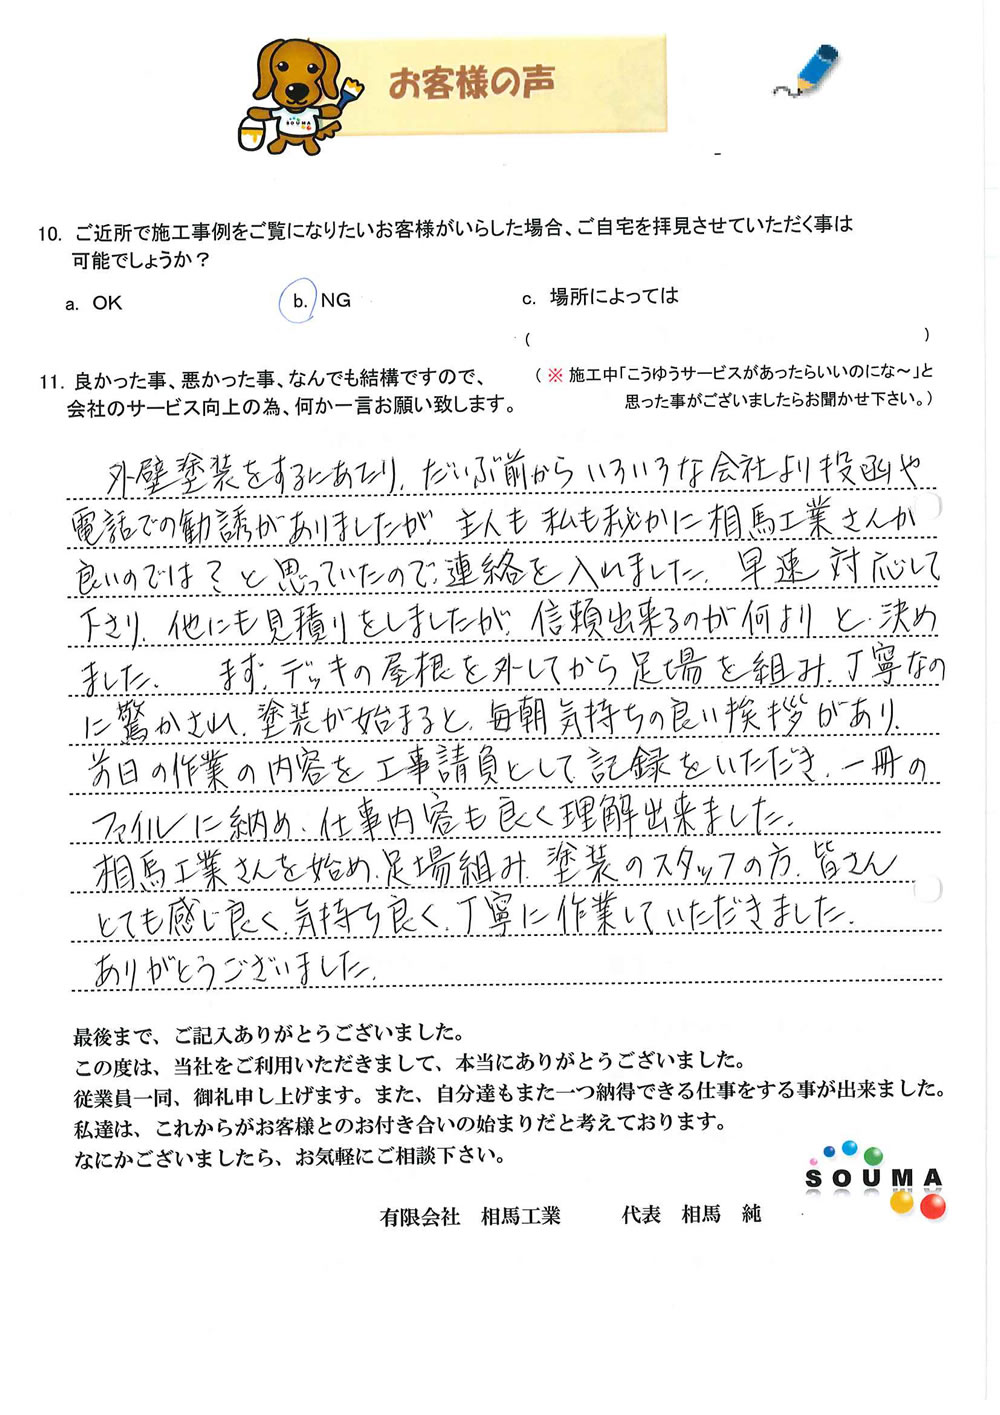 お客様の声
SOUMA
10. ご近所で施工事例をご覧になりたいお客様がいらした場合、ご自宅を拝見させていただく事は
可能でしょうか?
a. OK b. NG c. 場所によっては
( )
11. 良かった事、悪かった事、なんでも結構ですので、 (※ 施工中「こうゆうサービスがあったらいいのにな～」と
会社のサービス向上の為、何か一言お願い致します。 思った事がございましたらお聞かせ下さい。)
外壁塗装をするにあたり、だいぶ前からいろいろな会社より投函や
電話での勧誘がありましたが、主人も私も秘かに相馬工業さんが
良いのでは?と思っていたので、連絡を入れました。早速対応して
下さり、他にも見積りをしましたが、信頼出来るのが何よりと決め
ました。 まず、デッキの屋根を外してから足場を組み、丁寧なの
に驚かされ、塗装が始まると、毎朝気持ちの良い挨拶があり、
前日の作業の内容を工事請負として記録をいただき、一冊の
ファイルに納め、仕事内容も良く理解出来ました。
相馬工業さんを始め、足場組み、塗装のスタッフの方、皆さん
とても感じ良く、気持ち良く、丁寧に作業していただきました。
ありがとうございました。
最後まで、ご記入ありがとうございました。
この度は、当社をご利用いただきまして、本当にありがとうございました。
従業員一同、御礼申し上げます。また、自分達もまた一つ納得できる仕事をする事が出来ました。
私達は、これからがお客様とのお付き合いの始まりだと考えております。
なにかございましたら、お気軽にご相談下さい。
SOUMA
有限会社 相馬工業 代表 相馬 純